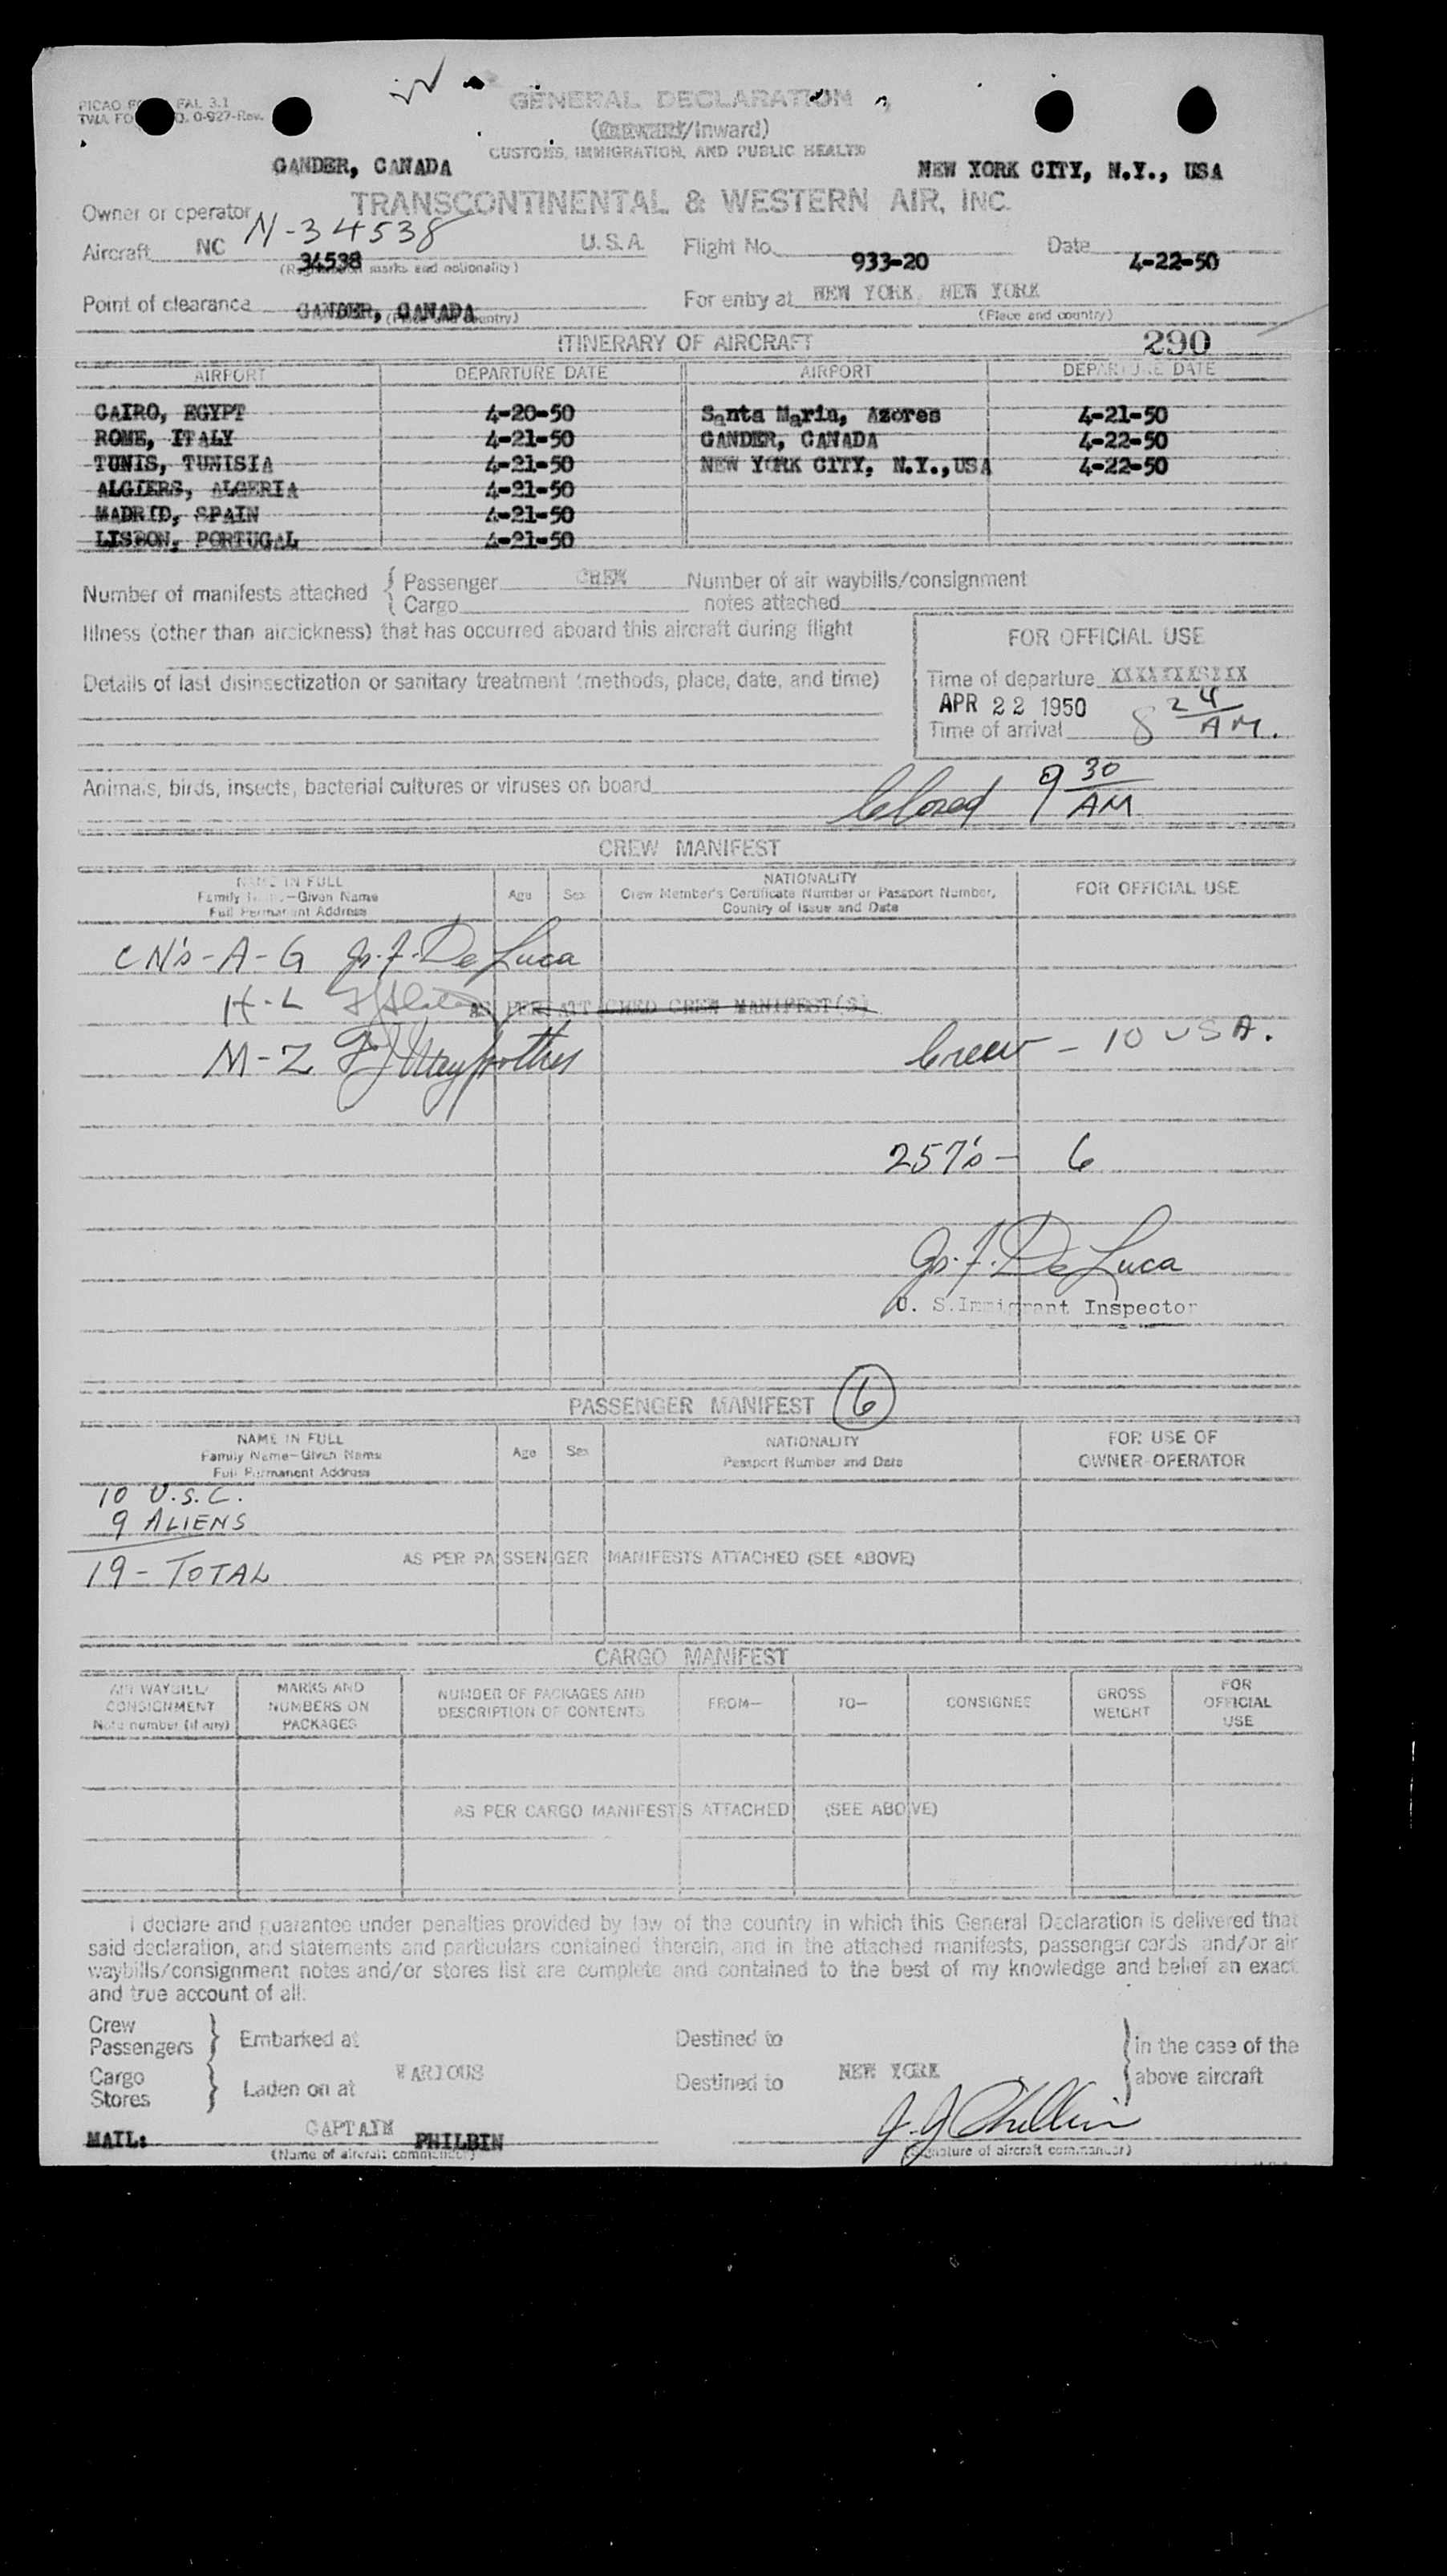 PICAO FAL 3.1
TWA FO 0-927-Rev.
GENERAL DECLARATION
(/Inward)
CUSTOMS, IMMIGRATION, AND PUBLIC HEALTH
GANDER, CANADA NEW YORK CITY, N.Y., USA
Owner or operator TRANSCONTINENTAL & WESTERN AIR, INC.
N-34538
Aircraft NC 34538 U.S.A. Flight No. 933-20 Date 4-22-50
(Registration marks and nationality)
Point of clearance GANDER, CANADA For entry at NEW YORK, NEW YORK
(Place and country) (Place and country)
ITINERARY OF AIRCRAFT 290
AIRPORT DEPARTURE DATE AIRPORT DEPARTURE DATE
CAIRO, EGYPT 4-20-50 Santa Maria, Azores 4-21-50
ROME, ITALY 4-21-50 GANDER, CANADA 4-22-50
TUNIS, TUNISIA 4-21-50 NEW YORK CITY, N.Y.,USA 4-22-50
ALGIERS, ALGERIA 4-21-50
MADRID, SPAIN 4-21-50
LISBON, PORTUGAL 4-21-50
Number of manifests attached { Passenger CREW Number of air waybills/consignment
Cargo notes attached
Illness (other than airsickness) that has occurred aboard this aircraft during flight
FOR OFFICIAL USE
Details of last disinsectization or sanitary treatment (methods, place, date, and time)
Time of departure
APR 22 1950 8 24 AM.
Time of arrival
Animals, birds, insects, bacterial cultures or viruses on board
Cleared 9 30 AM
CREW MANIFEST
NAME IN FULL Age Sex NATIONALITY FOR OFFICIAL USE
Family Name—Given Name Crew Member's Certificate Number or Passport Number,
Full Permanent Address Country of Issue and Date
CN's - A - G Jr. F. De Luca
H - L AS PER ATTACHED CREW MANIFEST(S)
M - Z
Crew - 10 USA.
257's - 6
Jr. F. De Luca
U. S. Immigrant Inspector
PASSENGER MANIFEST 6
NAME IN FULL Age Sex NATIONALITY FOR USE OF
Family Name—Given Name Passport Number and Date OWNER-OPERATOR
Full Permanent Address
10 U.S.C.
9 ALIENS
19 - TOTAL AS PER PASSENGER MANIFESTS ATTACHED (SEE ABOVE)
CARGO MANIFEST
AIR WAYBILL/ MARKS AND NUMBER OF PACKAGES AND FROM— TO— CONSIGNEE GROSS FOR
CONSIGNMENT NUMBERS ON DESCRIPTION OF CONTENTS WEIGHT OFFICIAL
Note number (if any) PACKAGES USE
AS PER CARGO MANIFESTS ATTACHED (SEE ABOVE)
I declare and guarantee under penalties provided by law of the country in which this General Declaration is delivered that
said declaration, and statements and particulars contained therein, and in the attached manifests, passenger cards and/or air
waybills/consignment notes and/or stores list are complete and contained to the best of my knowledge and belief an exact
and true account of all:
Crew
Passengers } Embarked at Destined to in the case of the
Cargo VARIOUS NEW YORK above aircraft
Stores } Laden on at Destined to
MAIL: CAPTAIN PHILBIN J. J. Philbin
(Name of aircraft commander) (Signature of aircraft commander)